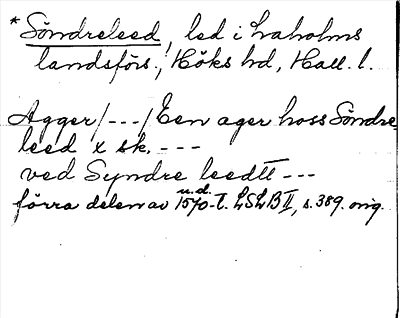 * Söndreleed, led i Laholms
landsförs., Höks hd, Hall. l.
Agger/---/Een ager hoss Söndre-
leed x sk. ---
ved Syndre leedtt ---
förra delen av 1570-t. u.d. LSLB II, s. 389. orig.